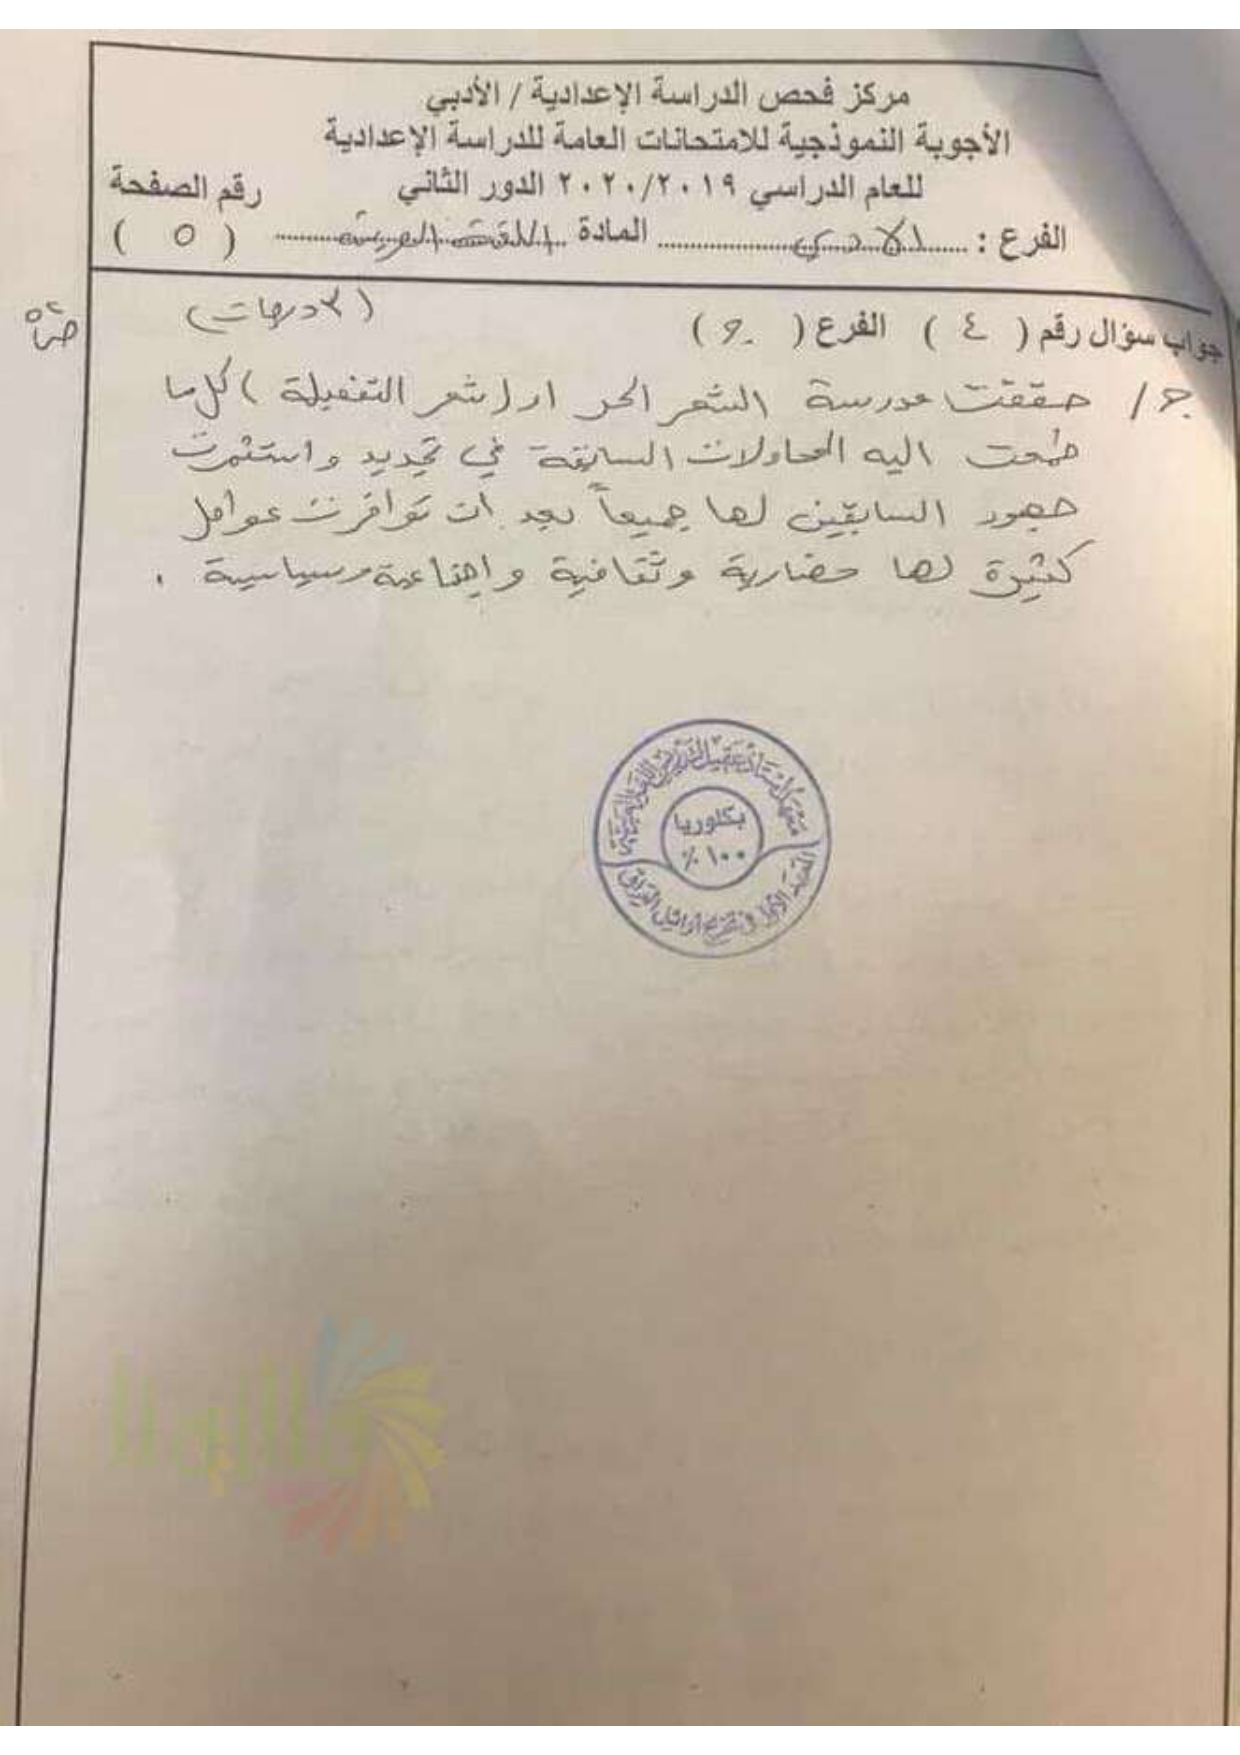 مركز فحص الدراسة الإعدادية / الأدبي
الأجوبة النموذجية للامتحانات العامة للدراسة الإعدادية
للعام الدراسي ٢٠٢٠/٢٠١٩ الدور الثاني
رقم الصفحة
الفرع : الادبي المادة اللغة العربية ( ٥ )
جواب سؤال رقم ( ٤ ) الفرع ( ج ) (٣ درجات)
ج / حققت مدرسة الشعر الحر او (شعر التفعيلة ) كل ما
طمحت اليه المحاولات السابقة في تجديد واستثمرت
جهود السابقين لها جميعاً بعد ان توافرت عوامل
كثيرة لها حضارية وثقافية واجتماعية وسياسية .
بكلوريا
١٠٠ ٪